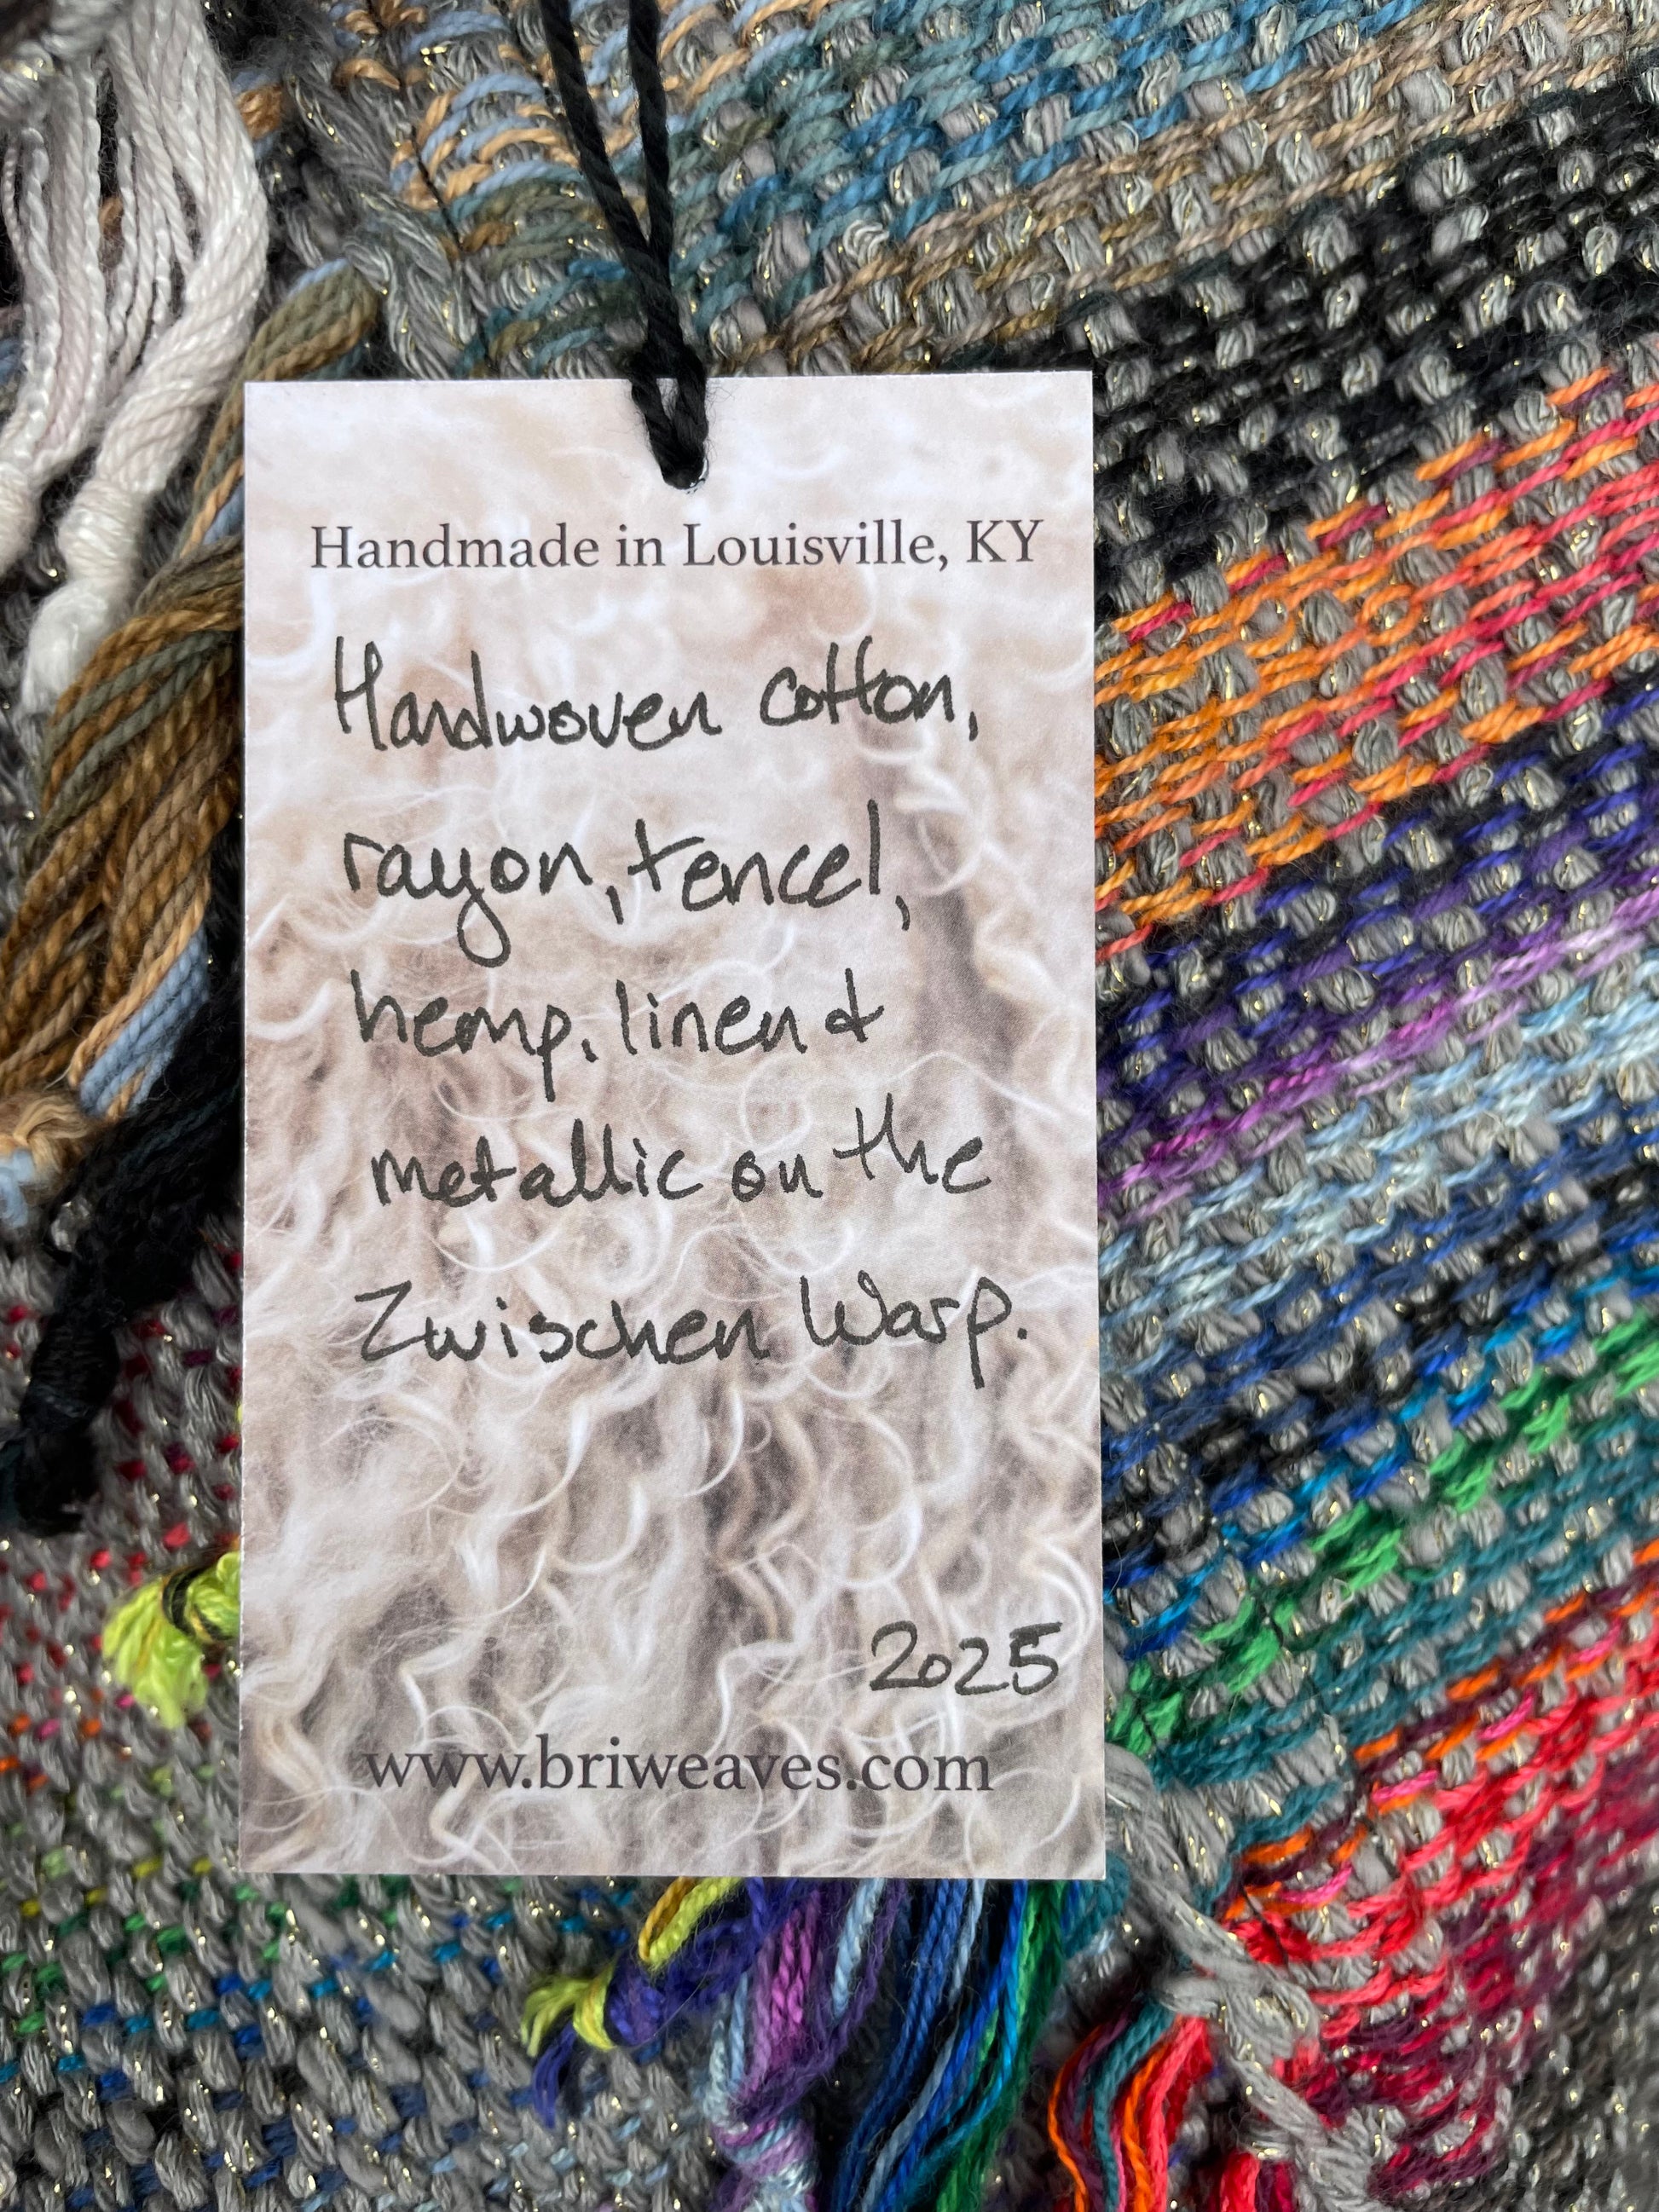 Handmade in Louisville, KY
Handwoven cotton,
rayon, tencel,
hemp, linen &
metallic on the
Zwischen Warp.
2025
www.briweaves.com